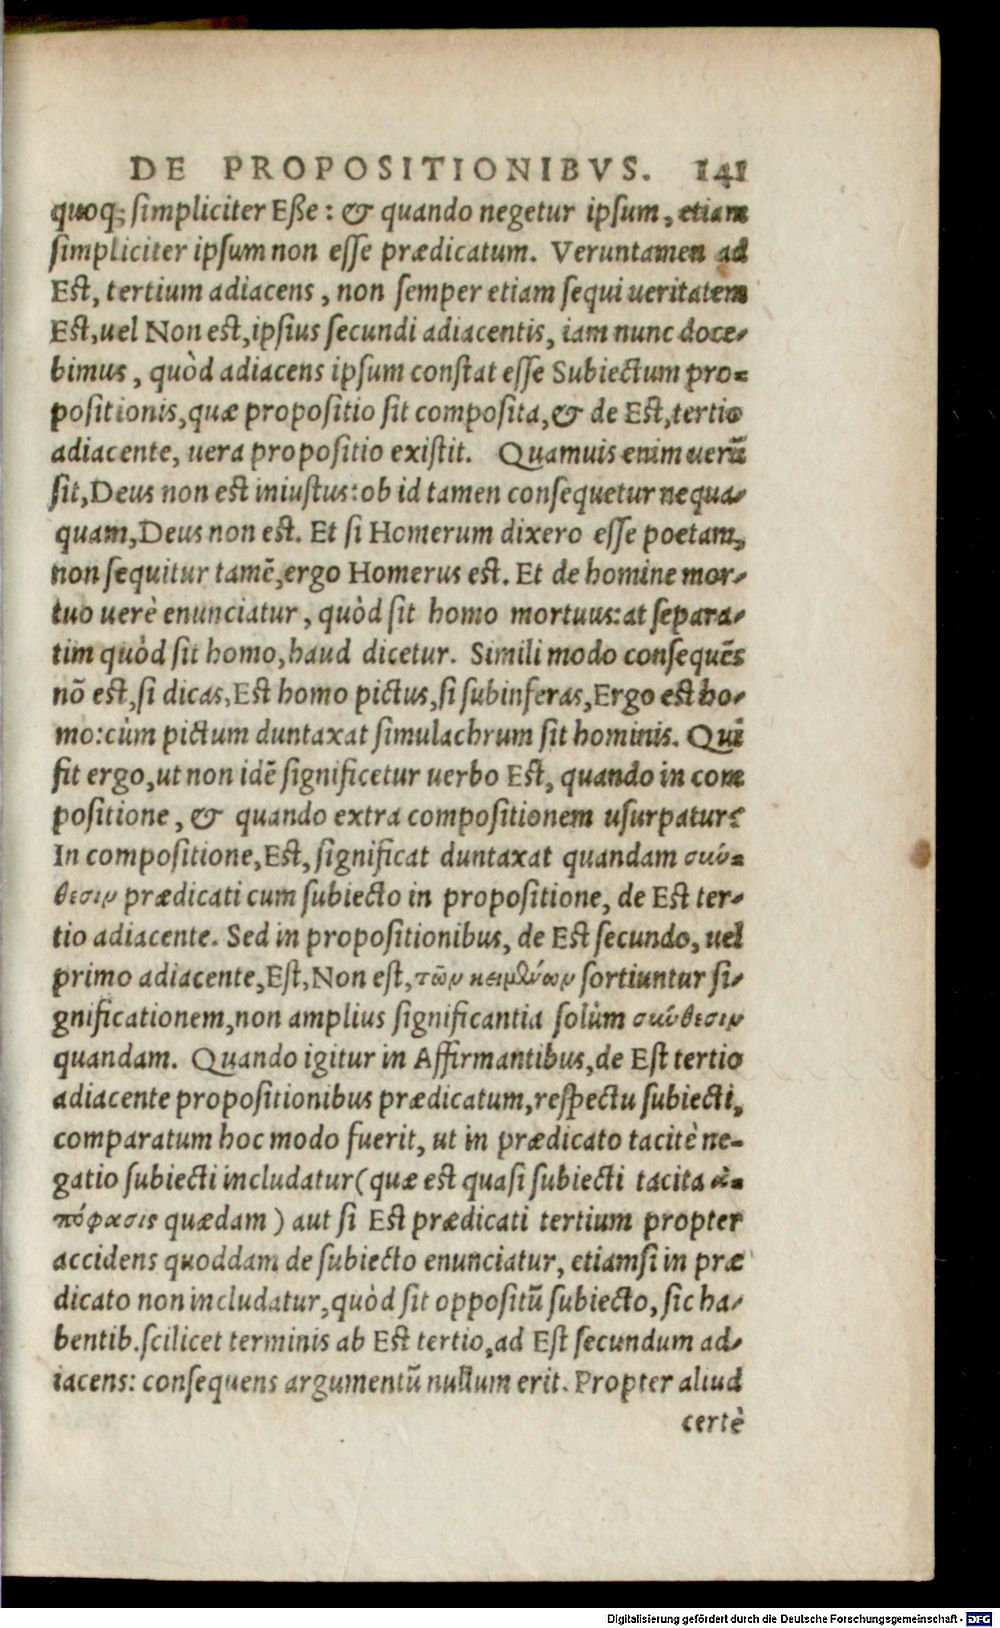 DE PROPOSITIONIBVS. 141
quoq; simpliciter Eße: & quando negetur ipsum, etiam
simpliciter ipsum non esse prædicatum. Veruntamen ad
Est, tertium adiacens, non semper etiam sequi ueritatem
Est, uel Non est, ipsius secundi adiacentis, iam nunc doce-
bimus, quòd adiacens ipsum constat esse Subiectum pro-
positionis, quæ propositio sit composita, & de Est, tertio
adiacente, uera propositio existit. Quamuis enim uerũ
sit, Deus non est iniustus: ob id tamen consequetur nequa-
quam, Deus non est. Et si Homerum dixero esse poetam,
non sequitur tamẽ, ergo Homerus est. Et de homine mor-
tuo uerè enunciatur, quòd sit homo mortuus: at separa-
tim quòd sit homo, haud dicetur. Simili modo consequẽs
nõ est, si dicas, Est homo pictus, si subinferas, Ergo est ho-
mo: cùm pictum duntaxat simulachrum sit hominis. Quĩ
fit ergo, ut non idẽ significetur uerbo Est, quando in com
positione, & quando extra compositionem usurpatur?
In compositione, Est, significat duntaxat quandam σύν-
θεσιν prædicati cum subiecto in propositione, de Est ter-
tio adiacente. Sed in propositionibus, de Est secundo, uel
primo adiacente, Est, Non est, τῶν κειμένων sortiuntur si-
gnificationem, non amplius significantia solùm σύνθεσιν
quandam. Quando igitur in Affirmantibus, de Est tertio
adiacente propositionibus prædicatum, respectu subiecti,
comparatum hoc modo fuerit, ut in prædicato tacitè ne-
gatio subiecti includatur (quæ est quasi subiecti tacita ἀ-
πόφασις quædam) aut si Est prædicati tertium propter
accidens quoddam de subiecto enunciatur, etiamsi in præ
dicato non includatur, quòd sit oppositũ subiecto, sic ha-
bentib. scilicet terminis ab Est tertio, ad Est secundum ad-
iacens: consequens argumentũ nullum erit. Propter aliud
certè
Digitalisierung gefördert durch die Deutsche Forschungsgemeinschaft - DFG